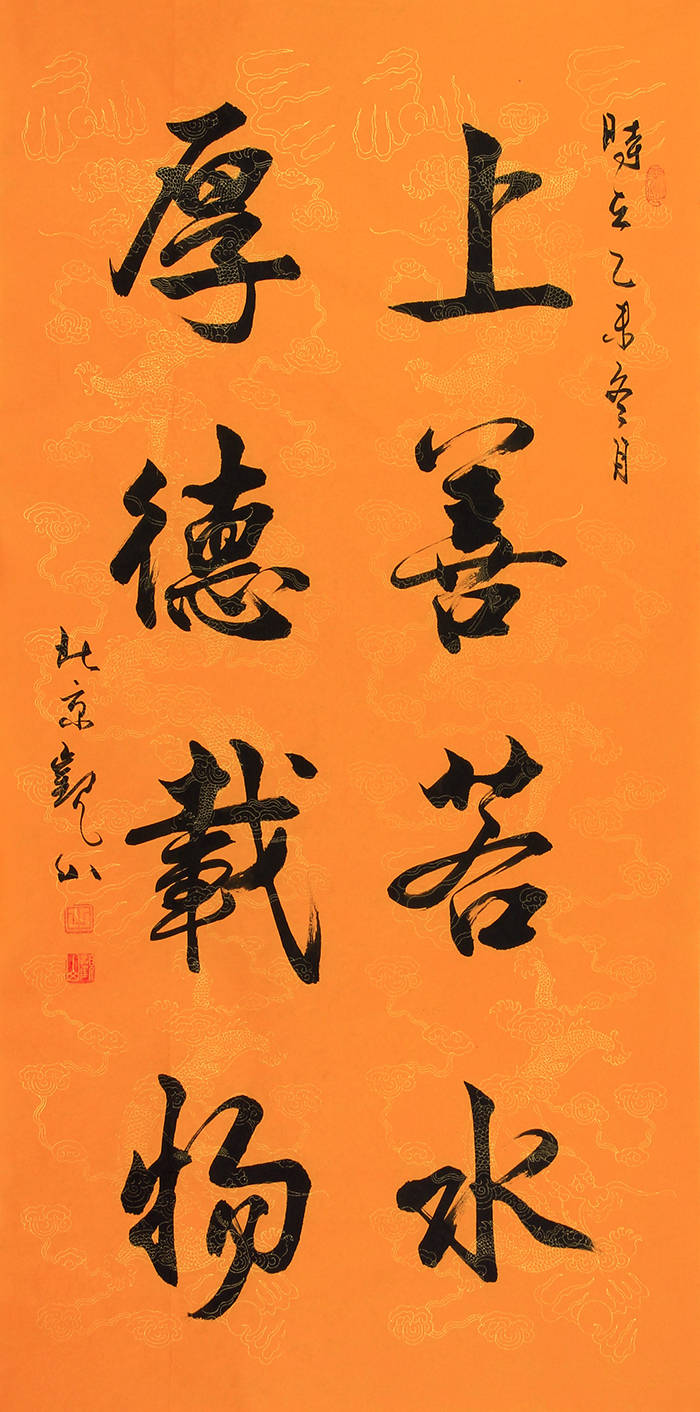 時在乙未冬月
上善若水
厚德載物
北京觀山